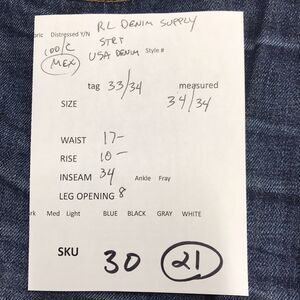 RL DENIM SUPPLY
oric Distressed Y/N STRT
100/C USA DENIM Style #
MEX
tag 33/34 measured
SIZE 34/34
WAIST 17-
RISE 10-
INSEAM 34 Ankle Fray
LEG OPENING 8
rk Med Light BLUE BLACK GRAY WHITE
SKU 30 21